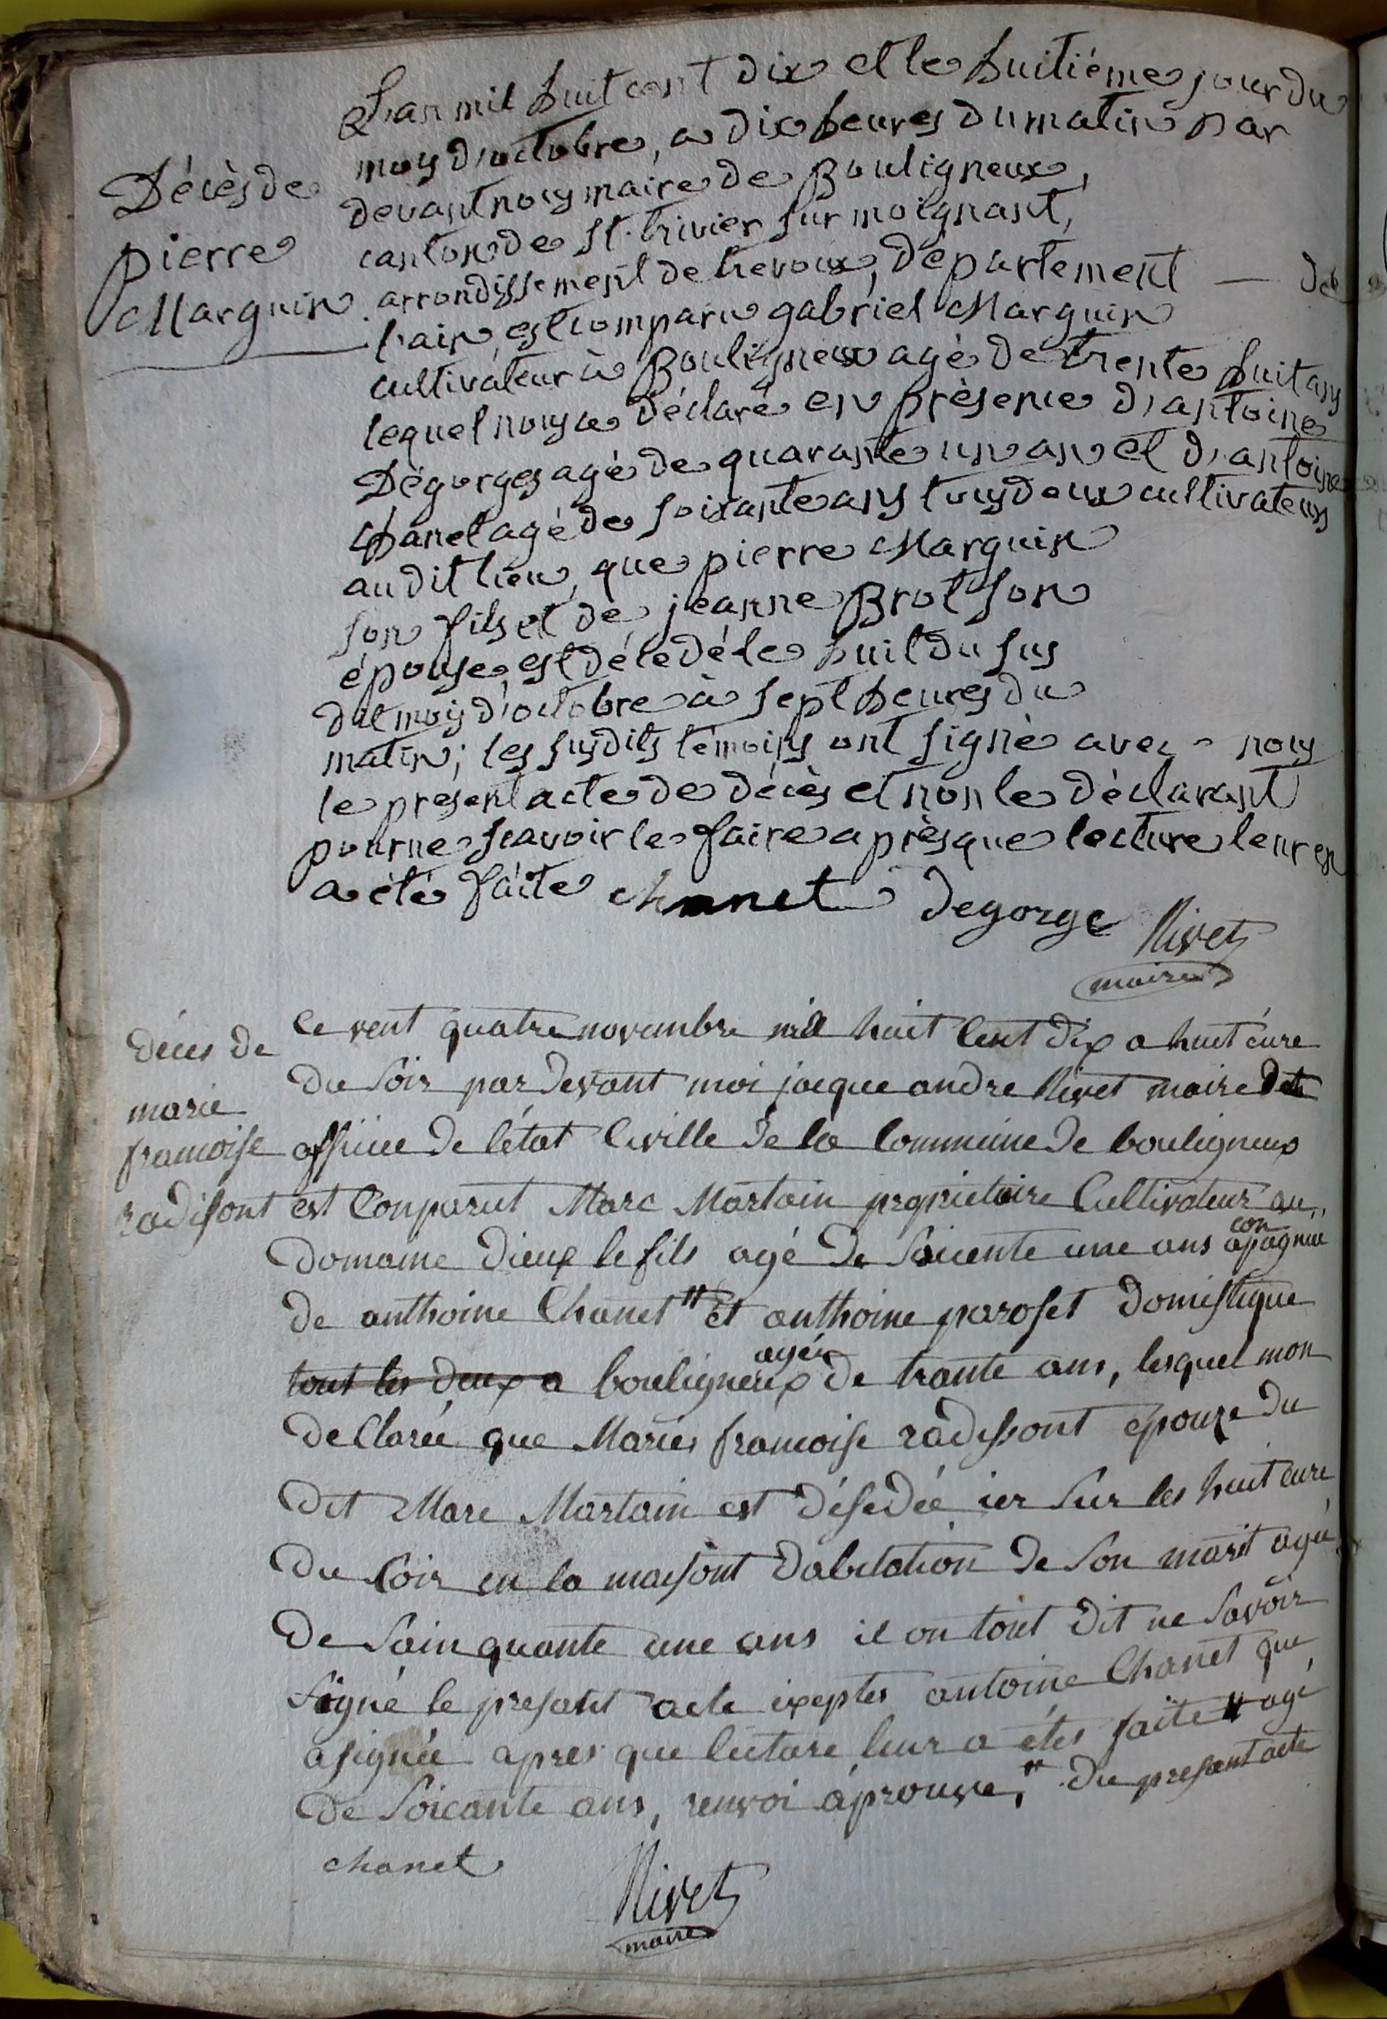 Décès de
pierre
Marguin.
L'an mil huit cent dix et le huitiéme jour du
moys d'octobre, a dix heures du matin par
devant nous maire de Bouligneux,
canton de St. trivier sur moignant,
arrondissement de trevoux, département — de
l'ain, est comparu gabriel Marguin
cultivateur à Bouligneux agé de trente huit ans
lequel nous a déclaré en présence d'antoine
Dégorges agé de quarante un an et d'antoine
Chanet agé de soixante ans tous deux cultivateurs
au dit lieu, que pierre Marguin
son fils et de jeanne Brot son
épouse, est décédé le huit du sus
dit moys d'octobre à sept heures du
matin; les susdits témoins ont signé avec - nous
le present acte de décès et non le déclarant
pour ne scavoir le faire après que lecture leur en
a été faite chanet degorge Rivet
maire
déces de
marie
francoise
radisont
Le vent quatre novembre mil huit Cent dix a huit éure
du soir par devant moi jacque andre Rivet maire et
officie de l'état Civille de la Commune de bouligneux
est Conparut Marc Martain proprietaire Cultivateur au
domaine dieux le fils agé de Soicente une ans conapagnie
de anthoine Chanet " et anthoine paroset domestique
tout les deux a bouligneux agées de trante ans, lesquel mon
deClarée que Maries francoise radissont épouze du
dit Marc Martain est désedée ier sur les huit eure
du soir en la maisont dabitation de son marit agée
de sainquante une ans il on tout dit ne savoir
signé le presant acte exeptes antoine Chanet qui
a signée apres que lectare leur a étes faite " agé
de Soicante ans, renvoi áprouve, " du presant acte
chanet
Rivet
maire